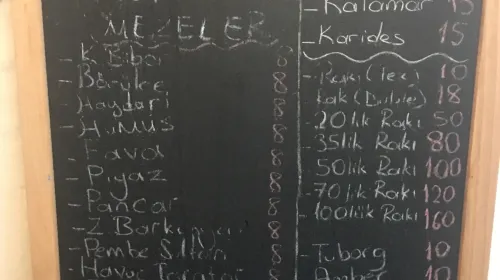 MEZELER
- K. Biber 8
- Börülce 8
- Haydari 8
- Humus 8
- Fava 8
- Piyaz 8
- Pancar 8
- Z. 8
- Pembe Sultan 8
- Havuç Tarator 8
- Kalamar 15
- Karides 15
- Rakı (Tek) 10
- Rakı (Duble) 18
- 20lik Rakı 50
- 35lik Rakı 80
- 50lik Rakı 100
- 70lik Rakı 120
- 100lük Rakı 160
- Tuborg 10